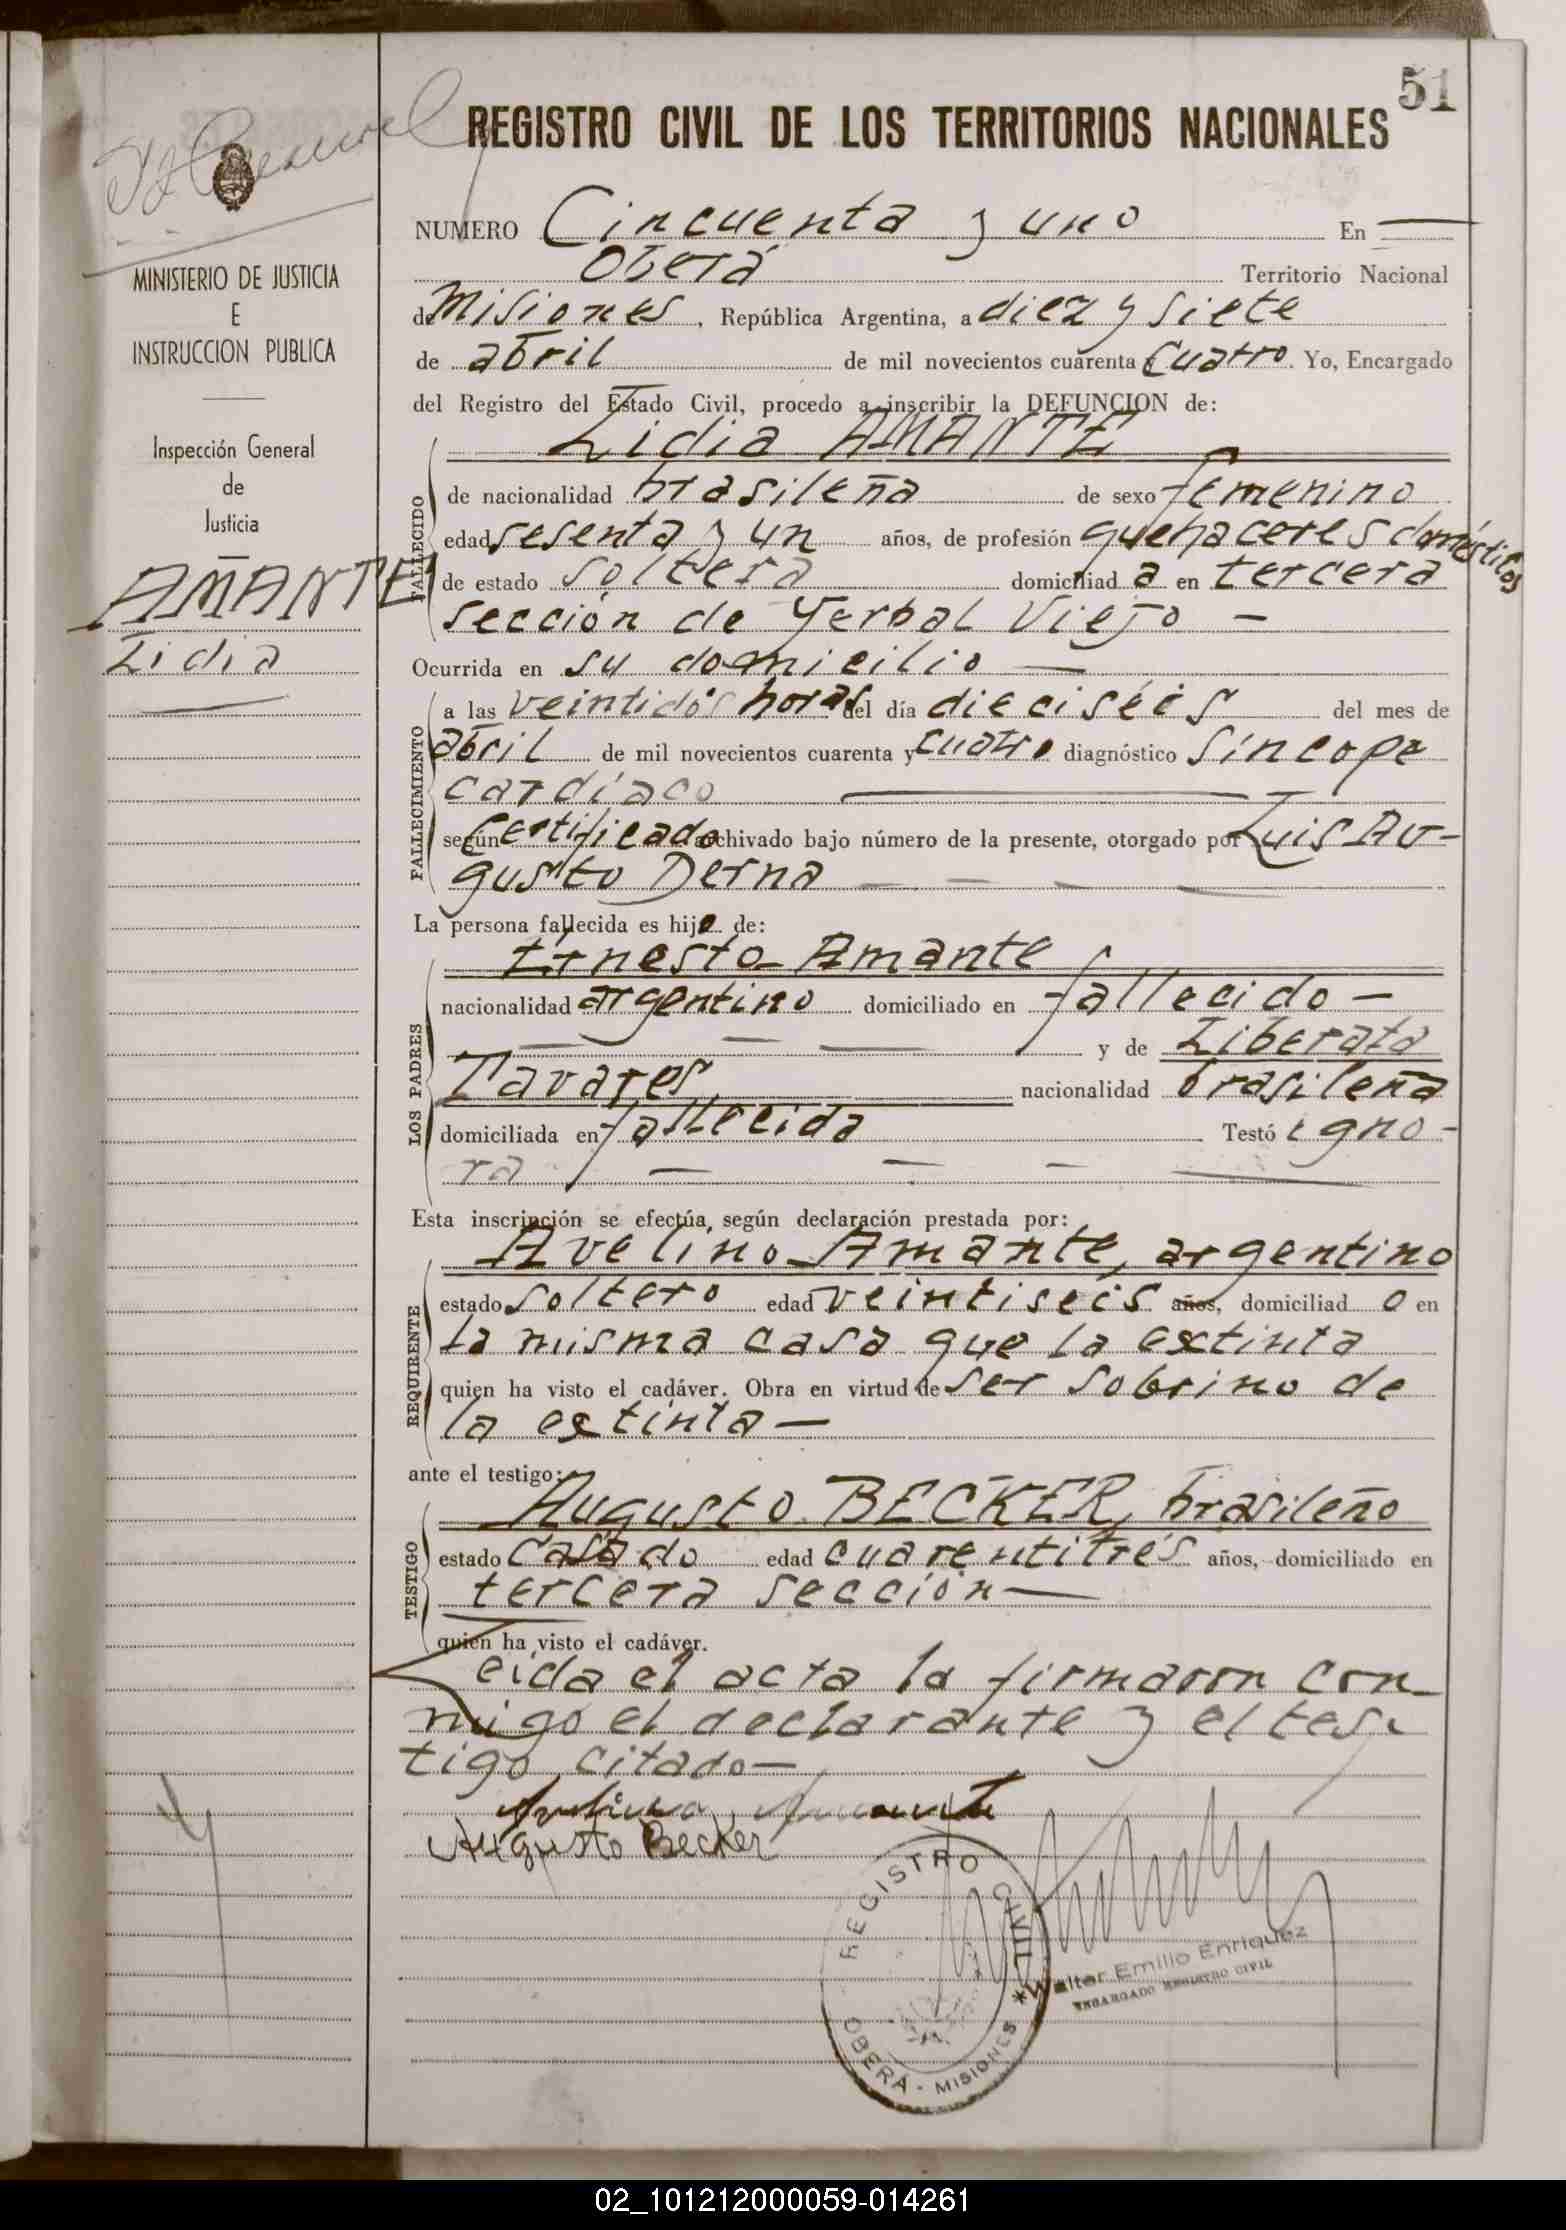 51
REGISTRO CIVIL DE LOS TERRITORIOS NACIONALES
MINISTERIO DE JUSTICIA
E
INSTRUCCION PUBLICA
Inspección General
de
Justicia
AMANTE
Lidia
NUMERO Cincuenta y uno En
Oberá Territorio Nacional
de Misiones, República Argentina, a diez y siete
de abril de mil novecientos cuarenta y cuatro. Yo, Encargado
del Registro del Estado Civil, procedo a inscribir la DEFUNCION de:
Lidia AMANTE
FALLECIDO
de nacionalidad brasileña de sexo femenino
edad sesenta y un años, de profesión quehaceres domésticos
de estado soltera domiciliad a en tercera
sección de Yerbal Viejo —
Ocurrida en su domicilio —
FALLECIMIENTO
a las veintidós horas del día dieciséis del mes de
abril de mil novecientos cuarenta y cuatro diagnóstico síncope
cardíaco —
según certificado archivado bajo número de la presente, otorgado por Luis Au-
gusto Derna — — — —
La persona fallecida es hija de:
LOS PADRES
Ernesto Amante
nacionalidad argentino domiciliado en fallecido —
— — — y de Liberata
Tavares nacionalidad brasileña
domiciliada en fallecida Testó igno-
ra — — — —
Esta inscripción se efectúa, según declaración prestada por:
REQUIRENTE
Avelino Amante, argentino
estado soltero edad veintiseis años, domiciliad o en
la misma casa que la extinta
quien ha visto el cadáver. Obra en virtud de ser sobrino de
la extinta —
ante el testigo:
TESTIGO
Augusto BECKER, brasileño
estado casado edad cuarentitrés años, domiciliado en
tercera sección —
quien ha visto el cadáver.
Leída el acta la firmaron con-
migo el declarante y el tes-
tigo citado —
Avelino Amante
Augusto Becker
REGISTRO CIVIL
OBERÁ - MISIONES
Walter Emilio Enriquez
ENCARGADO REGISTRO CIVIL
02_101212000059-014261